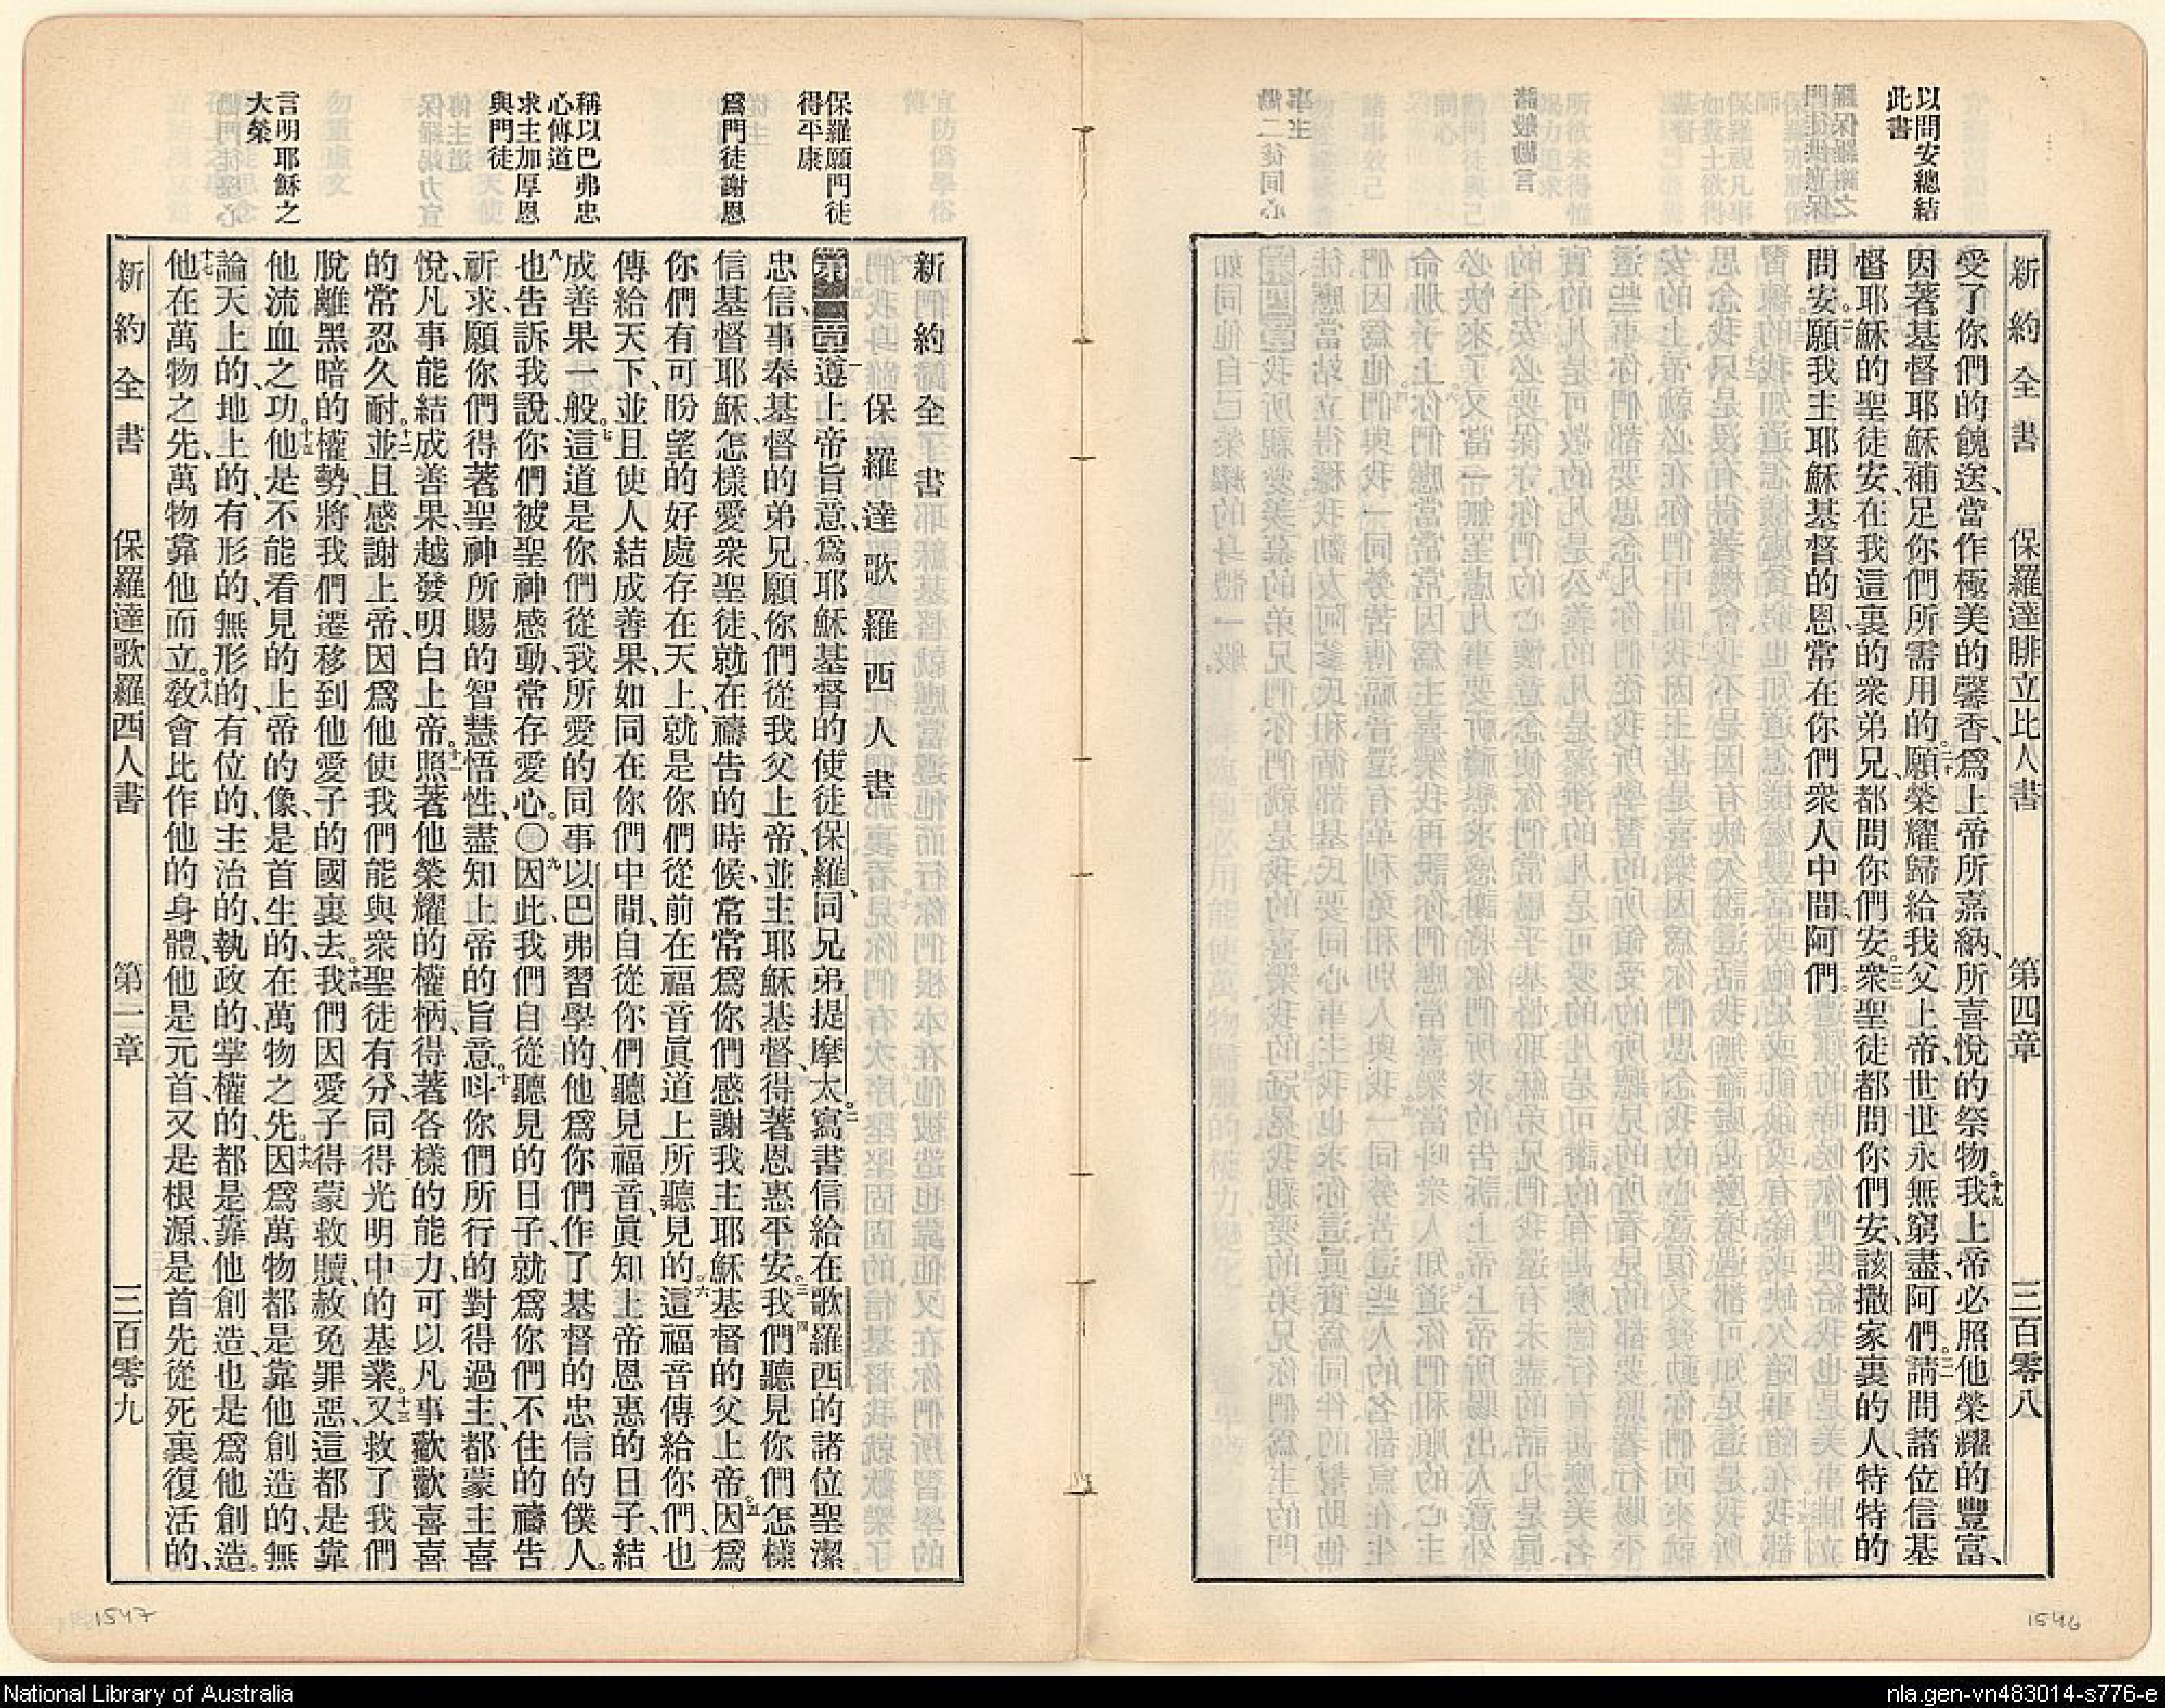 新約全書 保羅達腓立比人書 第四章 三百零八
以問安總結
此書
受了你們的餽送、當作極美的馨香、爲上帝所嘉納、所喜悅的祭物。十九我上帝必照他榮耀的豐富、
因著基督耶穌補足你們所需用的。二十願榮耀歸給我父上帝、世世永無窮盡、阿們。二一請問諸位信基
督耶穌的聖徒安、在我這裏的衆弟兄、都問你們安。二二衆聖徒都問你們安、該撒家裏的人特特的
問安。二三願我主耶穌基督的恩、常在你們衆人中間、阿們。
新約全書
保羅達歌羅西人書
保羅願門徒
得平康
爲門徒謝恩
稱以巴弗忠
心傳道
求主加厚恩
與門徒
言明耶穌之
大榮
第一章一遵上帝旨意、爲耶穌基督的使徒保羅、同兄弟提摩太。二寫書信給在歌羅西的諸位聖潔
忠信、事奉基督的弟兄、願你們從我父上帝、並主耶穌基督、得著恩惠平安。三我們聽見你們怎樣
信基督耶穌、怎樣愛衆聖徒、就在禱告的時候、常常爲你們感謝我主耶穌基督的父上帝。五因爲
你們有可盼望的好處存在天上、就是你們從前在福音眞道上所聽見的。六這福音傳給你們、也
傳給天下、並且使人結成善果、如同在你們中間、自從你們聽見福音、眞知上帝恩惠的日子、結
成善果一般。七這道是你們從我所愛的同事以巴弗習學的、他爲你們作了基督的忠信的僕人。
八也告訴我說、你們被聖神感動、常存愛心。〇九因此我們自從聽見的日子、就爲你們不住的禱告
祈求、願你們得著聖神所賜的智慧悟性、盡知上帝的旨意。十呌你們所行的對得過主、都蒙主喜
悅、凡事能結成善果、越發明白上帝。十一照著他榮耀的權柄、得著各樣的能力、可以凡事歡歡喜喜
的常忍久耐。十二並且感謝上帝、因爲他使我們能與衆聖徒有分、同得光明中的基業。十三又救了我們
脫離黑暗的權勢、將我們遷移到他愛子的國裏去。十四我們因愛子得蒙救贖、赦免罪惡、這都是靠
他流血之功。十五他是不能看見的上帝的像、是首生的、在萬物之先。十六因爲萬物都是靠他創造的、無
論天上的、地上的、有形的、無形的、有位的、主治的、執政的、掌權的、都是靠他創造、也是爲他創造。
十七他在萬物之先、萬物靠他而立。十八敎會比作他的身體、他是元首、又是根源、是首先從死裏復活的、
新約全書 保羅達歌羅西人書 第一章 三百零九
1547
1546
National Library of Australia
nla.gen-vn483014-s776-e